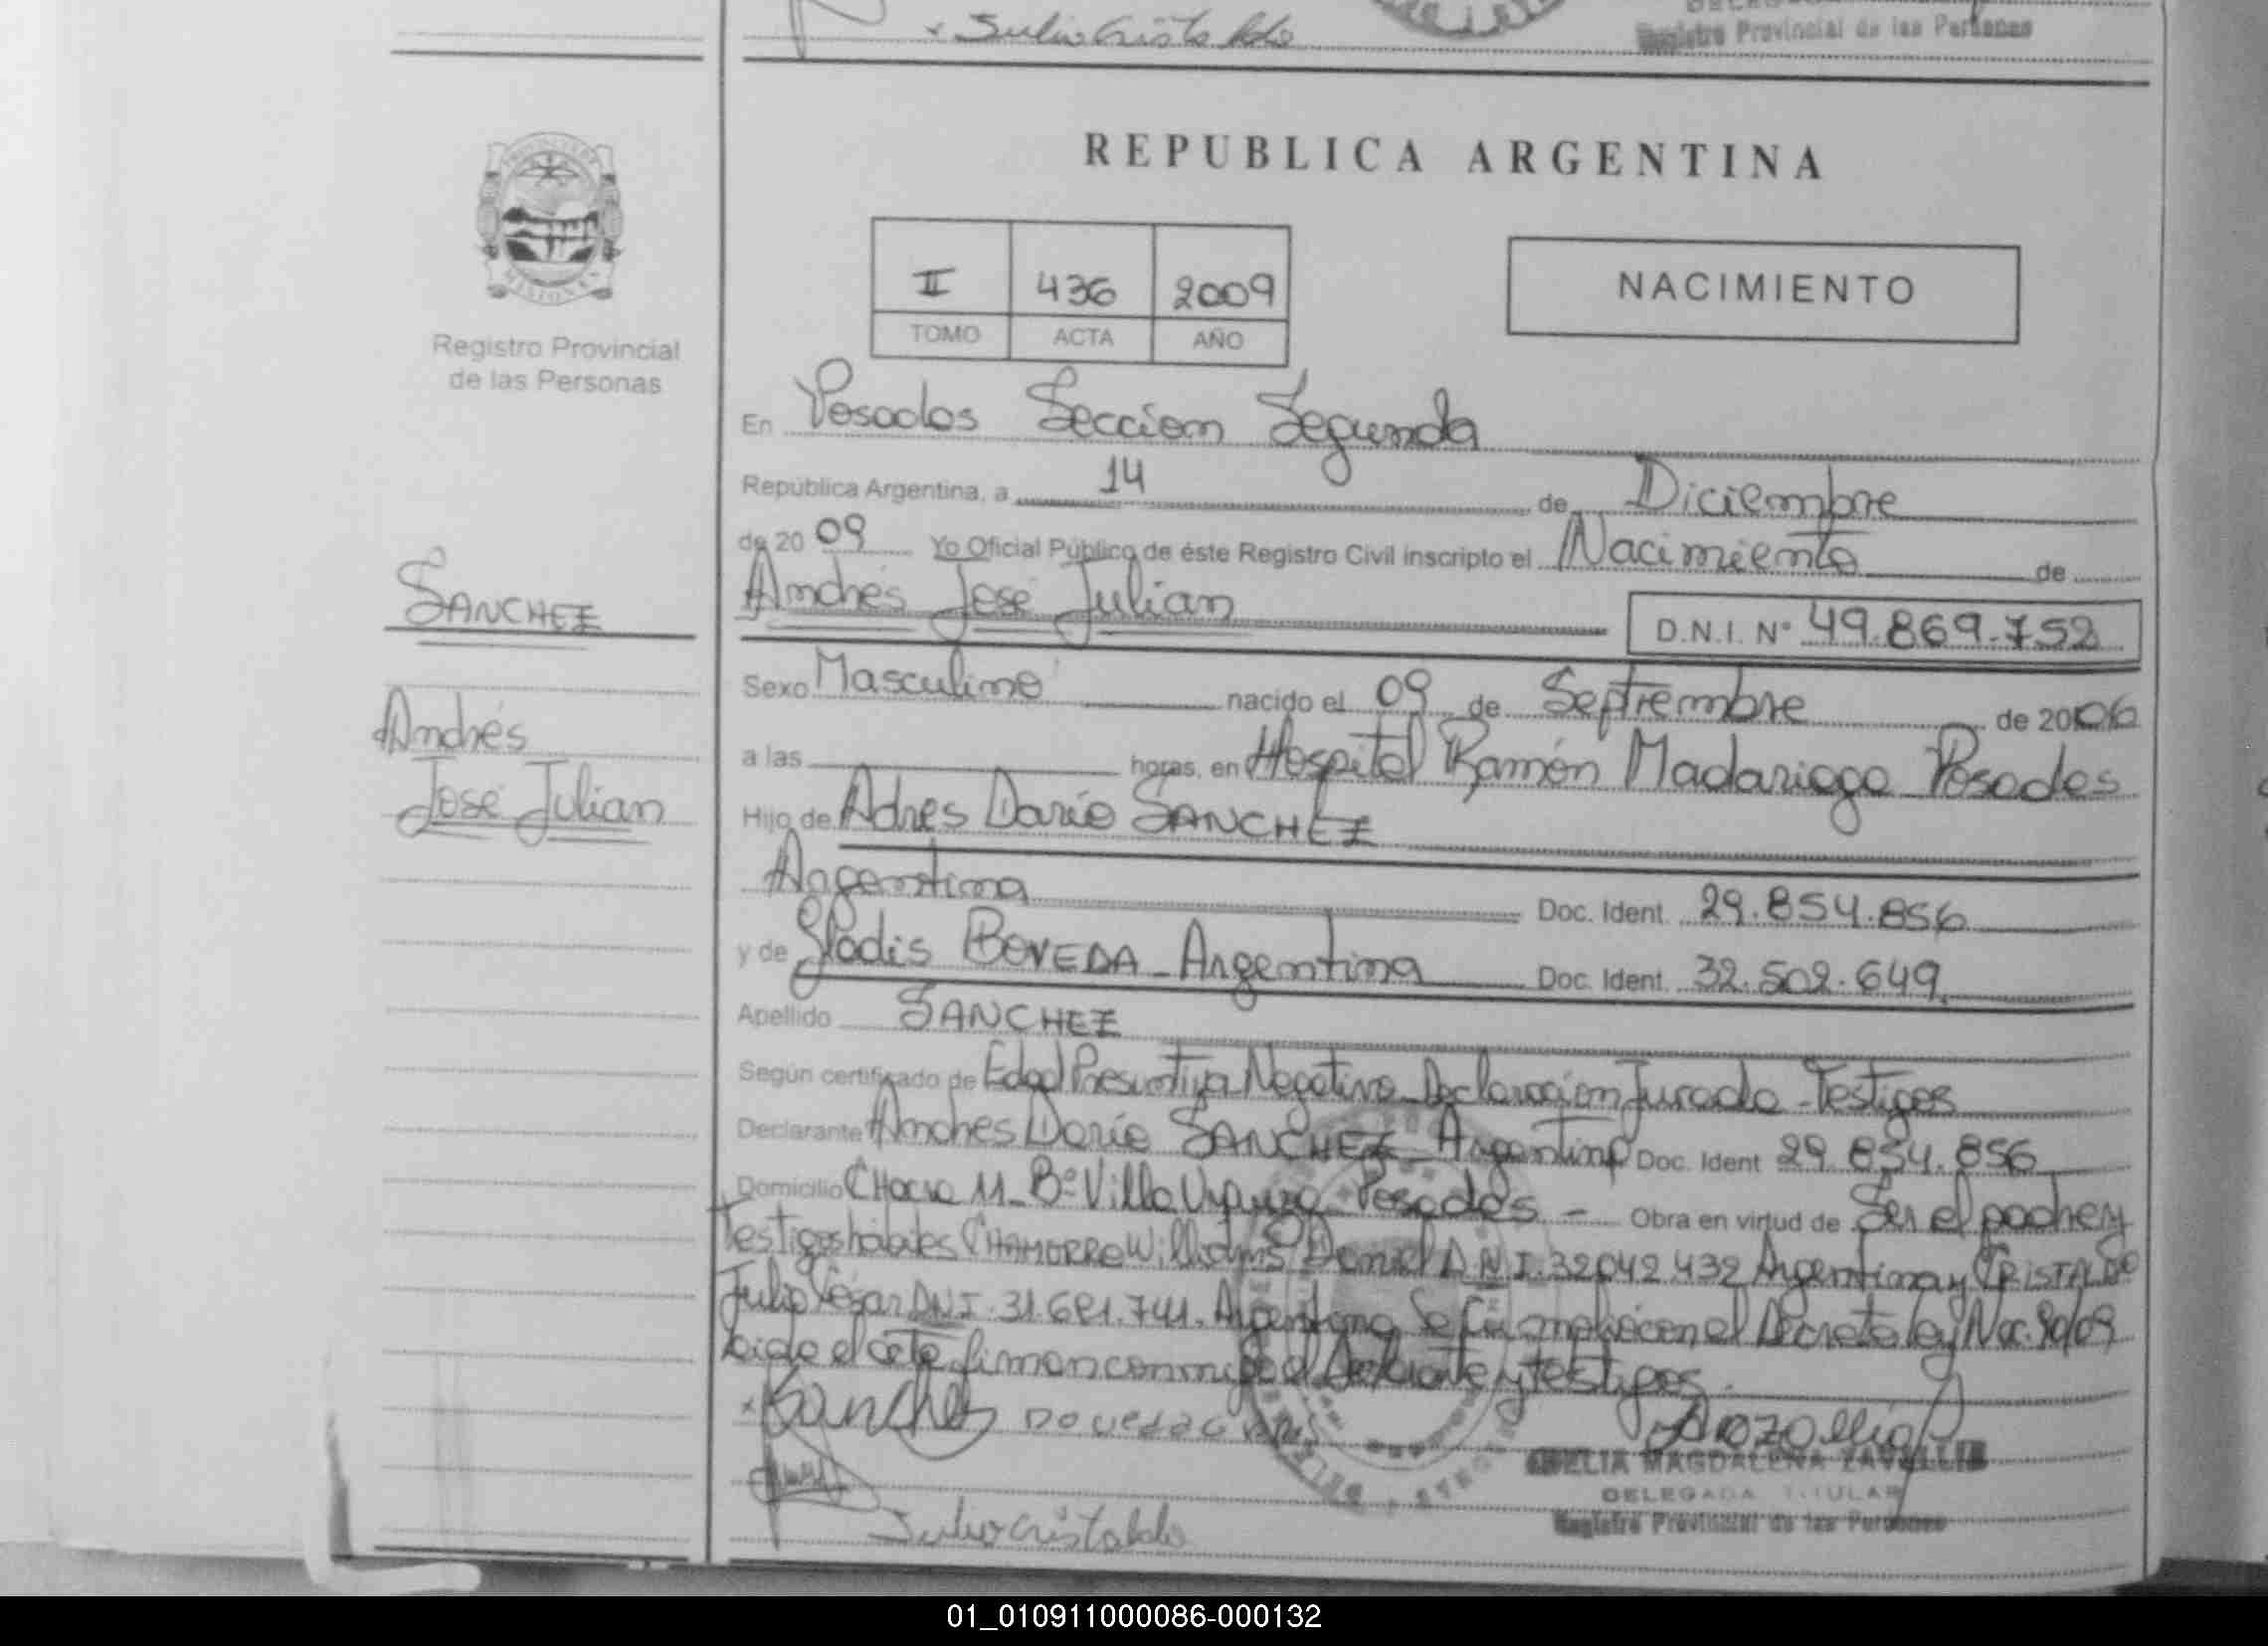 x Julio Cristaldo
Registro Provincial de las Personas
PROVINCIA DE
MISIONES
Registro Provincial
de las Personas
REPUBLICA ARGENTINA
II 436 2009
TOMO ACTA AÑO
NACIMIENTO
En Posadas Seccion Segunda
República Argentina, a 14 de Diciembre
de 20 09 Yo Oficial Público de éste Registro Civil inscripto el Nacimiento de
SANCHEZ
Andrés José Julian
D.N.I. Nº 49.869.752
Sexo Masculino nacido el 09 de Septiembre de 2006
Andrés
José Julian
a las horas, en Hospital Ramón Madariaga Posadas
Hijo de Adres Darío SANCHEZ
Argentina Doc. Ident. 29.854.856
y de Gladis BOVEDA - Argentina Doc. Ident. 32.502.649
Apellido SANCHEZ
Según certificado de Edad Presuntiva Negativa Declaracion Jurada - Testigos
Declarante Andres Dario SANCHEZ - Argentino Doc. Ident 29.854.856
Domicilio CHacra 11 - Bº Villa Posadas - Obra en virtud de Ser el padre y
Testigos habiles CHAMORRO Williams Daniel D.N.I. 32042.432 Argentina y CRISTALDO
Julio César DNI. 31.681.741. Argentina Se en el Decreto ley Nac. 90/09
Leida el acta firman conmigo el Declarante y testigos.
x Sanches
Julio Cristaldo
DELIA MAGDALENA ZAVALLIA
DELEGADA TITULAR
Registro Provincial de las Personas
01_010911000086-000132